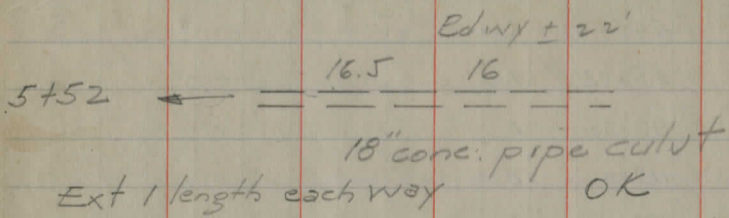 Rdwy ± 22'
16.5 16
5+52
18" conc. pipe culvt
Ext 1 length each way OK